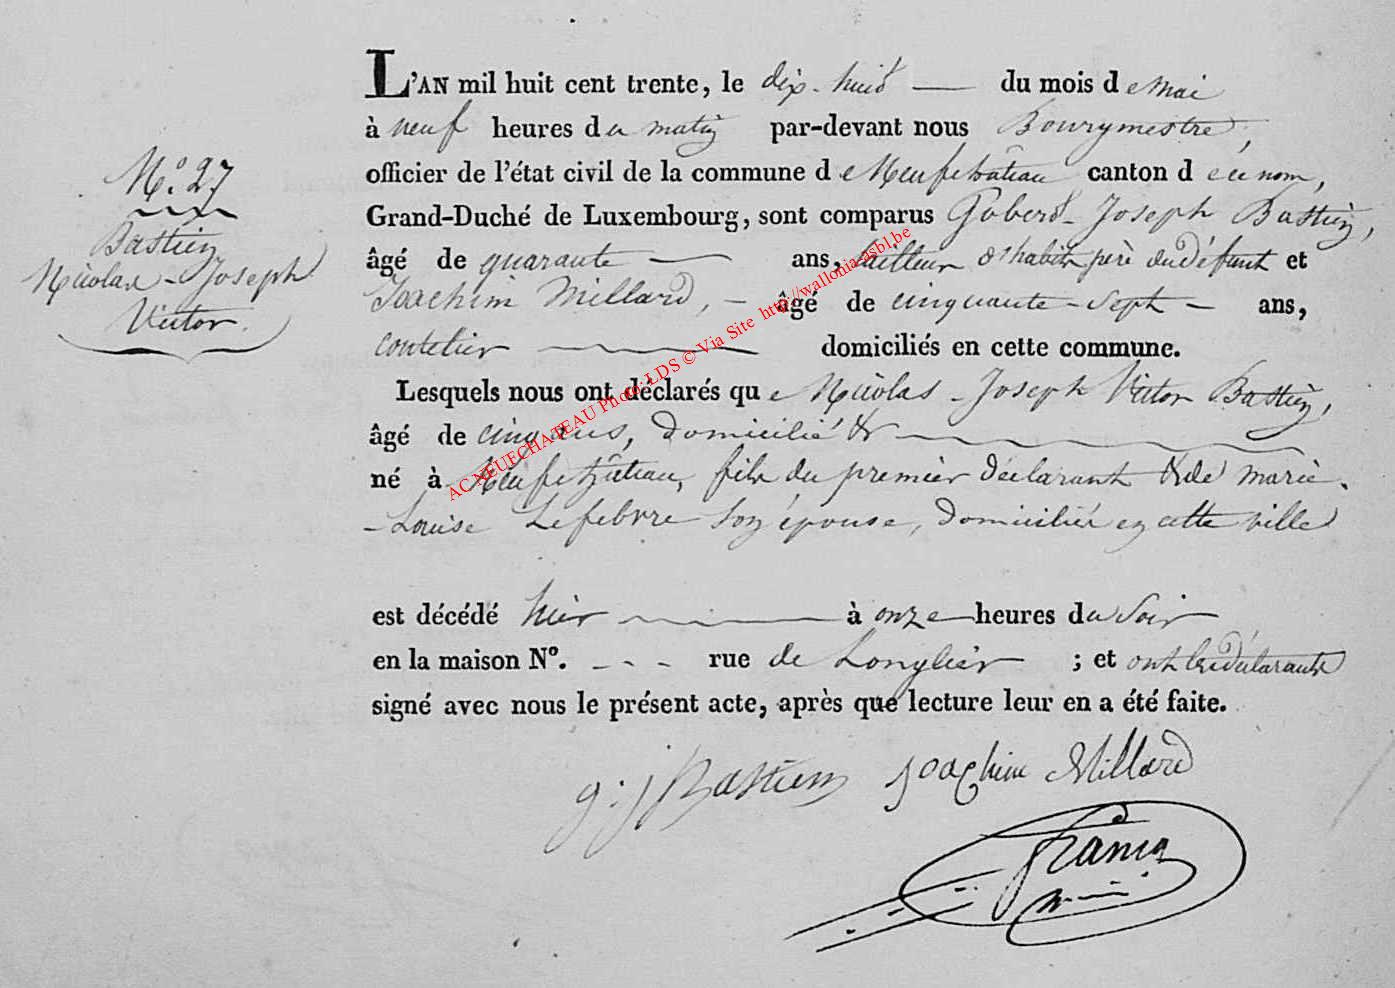 L'AN mil huit cent trente, le dix-huit du mois de Mai
à neuf heures du matin par-devant nous Bourgmestre,
officier de l'état civil de la commune de Neufchâteau canton de ce nom,
N.° 27
Grand-Duché de Luxembourg, sont comparus Gobert-Joseph Bastien,
Bastien
âgé de quarante ans, tailleur d'habits père du défunt et
Nicolas-Joseph
Joachim Millard, âgé de cinquante-sept ans,
Victor.
coutelier domiciliés en cette commune.
Lesquels nous ont déclarés que Nicolas-Joseph Victor Bastien,
âgé de cinq ans, domicilié &
né à Neufchâteau, fils du premier déclarant & de marie
-Louise Lefebvre son épouse, domiciliés en cette ville
est décédé hier à onze heures du soir
en la maison N°. - - - rue de Longlier ; et ont les déclarants
signé avec nous le présent acte, après que lecture leur en a été faite.
g: j Bastien Joachim Millard
ACNEUFCHATEAU Photo: LDS © Via Site http://wallonia-asbl.be